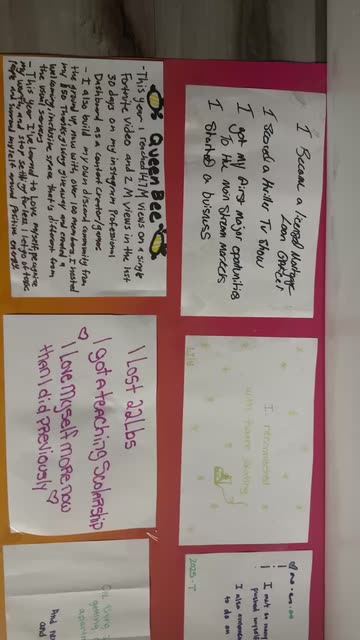 I Became a licensed Mortgage
Loan Officer
I scored a thriller TV show
I got my first major opportunities
To the Main Stream Markets
I Started a business
Queen Bee
- This year I reached 147M views on a single
Fortnite Video and 2M Views in the last
30 days on my Instagram Professional
Dashboard as a content Creator/gamer
- I also build my own discord community from
the ground up now with over 100 members, I hosted
my $50 Thanksgiving giveaway and created a
welcoming, inclusive space that's different from
the usual servers
- This year I've learned to Love myself, recognize
my worth, and stop settling for less. I let go of toxic
people and surround myself around positive energy
I reconnected
with flower
LTN
I Lost 22 Lbs
I got a teaching Scholarship
♡ I Love myself more now
than I did previously ♡
I
pushed
I also
to do
2025-T
And
and